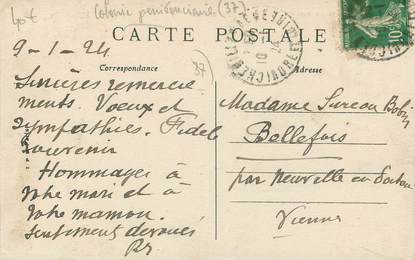 40€
Colonie pénitenciaire (37)
CARTE POSTALE
Correspondance
Adresse
37
10
24
10
9-1-24
Sincères remercie-
ments. Voeux et
sympathies. Fidèle
souvenir
Hommages à
votre mari et à
votre maman.
Sentiments dévoués
Madame Sureau
Bellefois
par Neuville en Poitou
Vienne